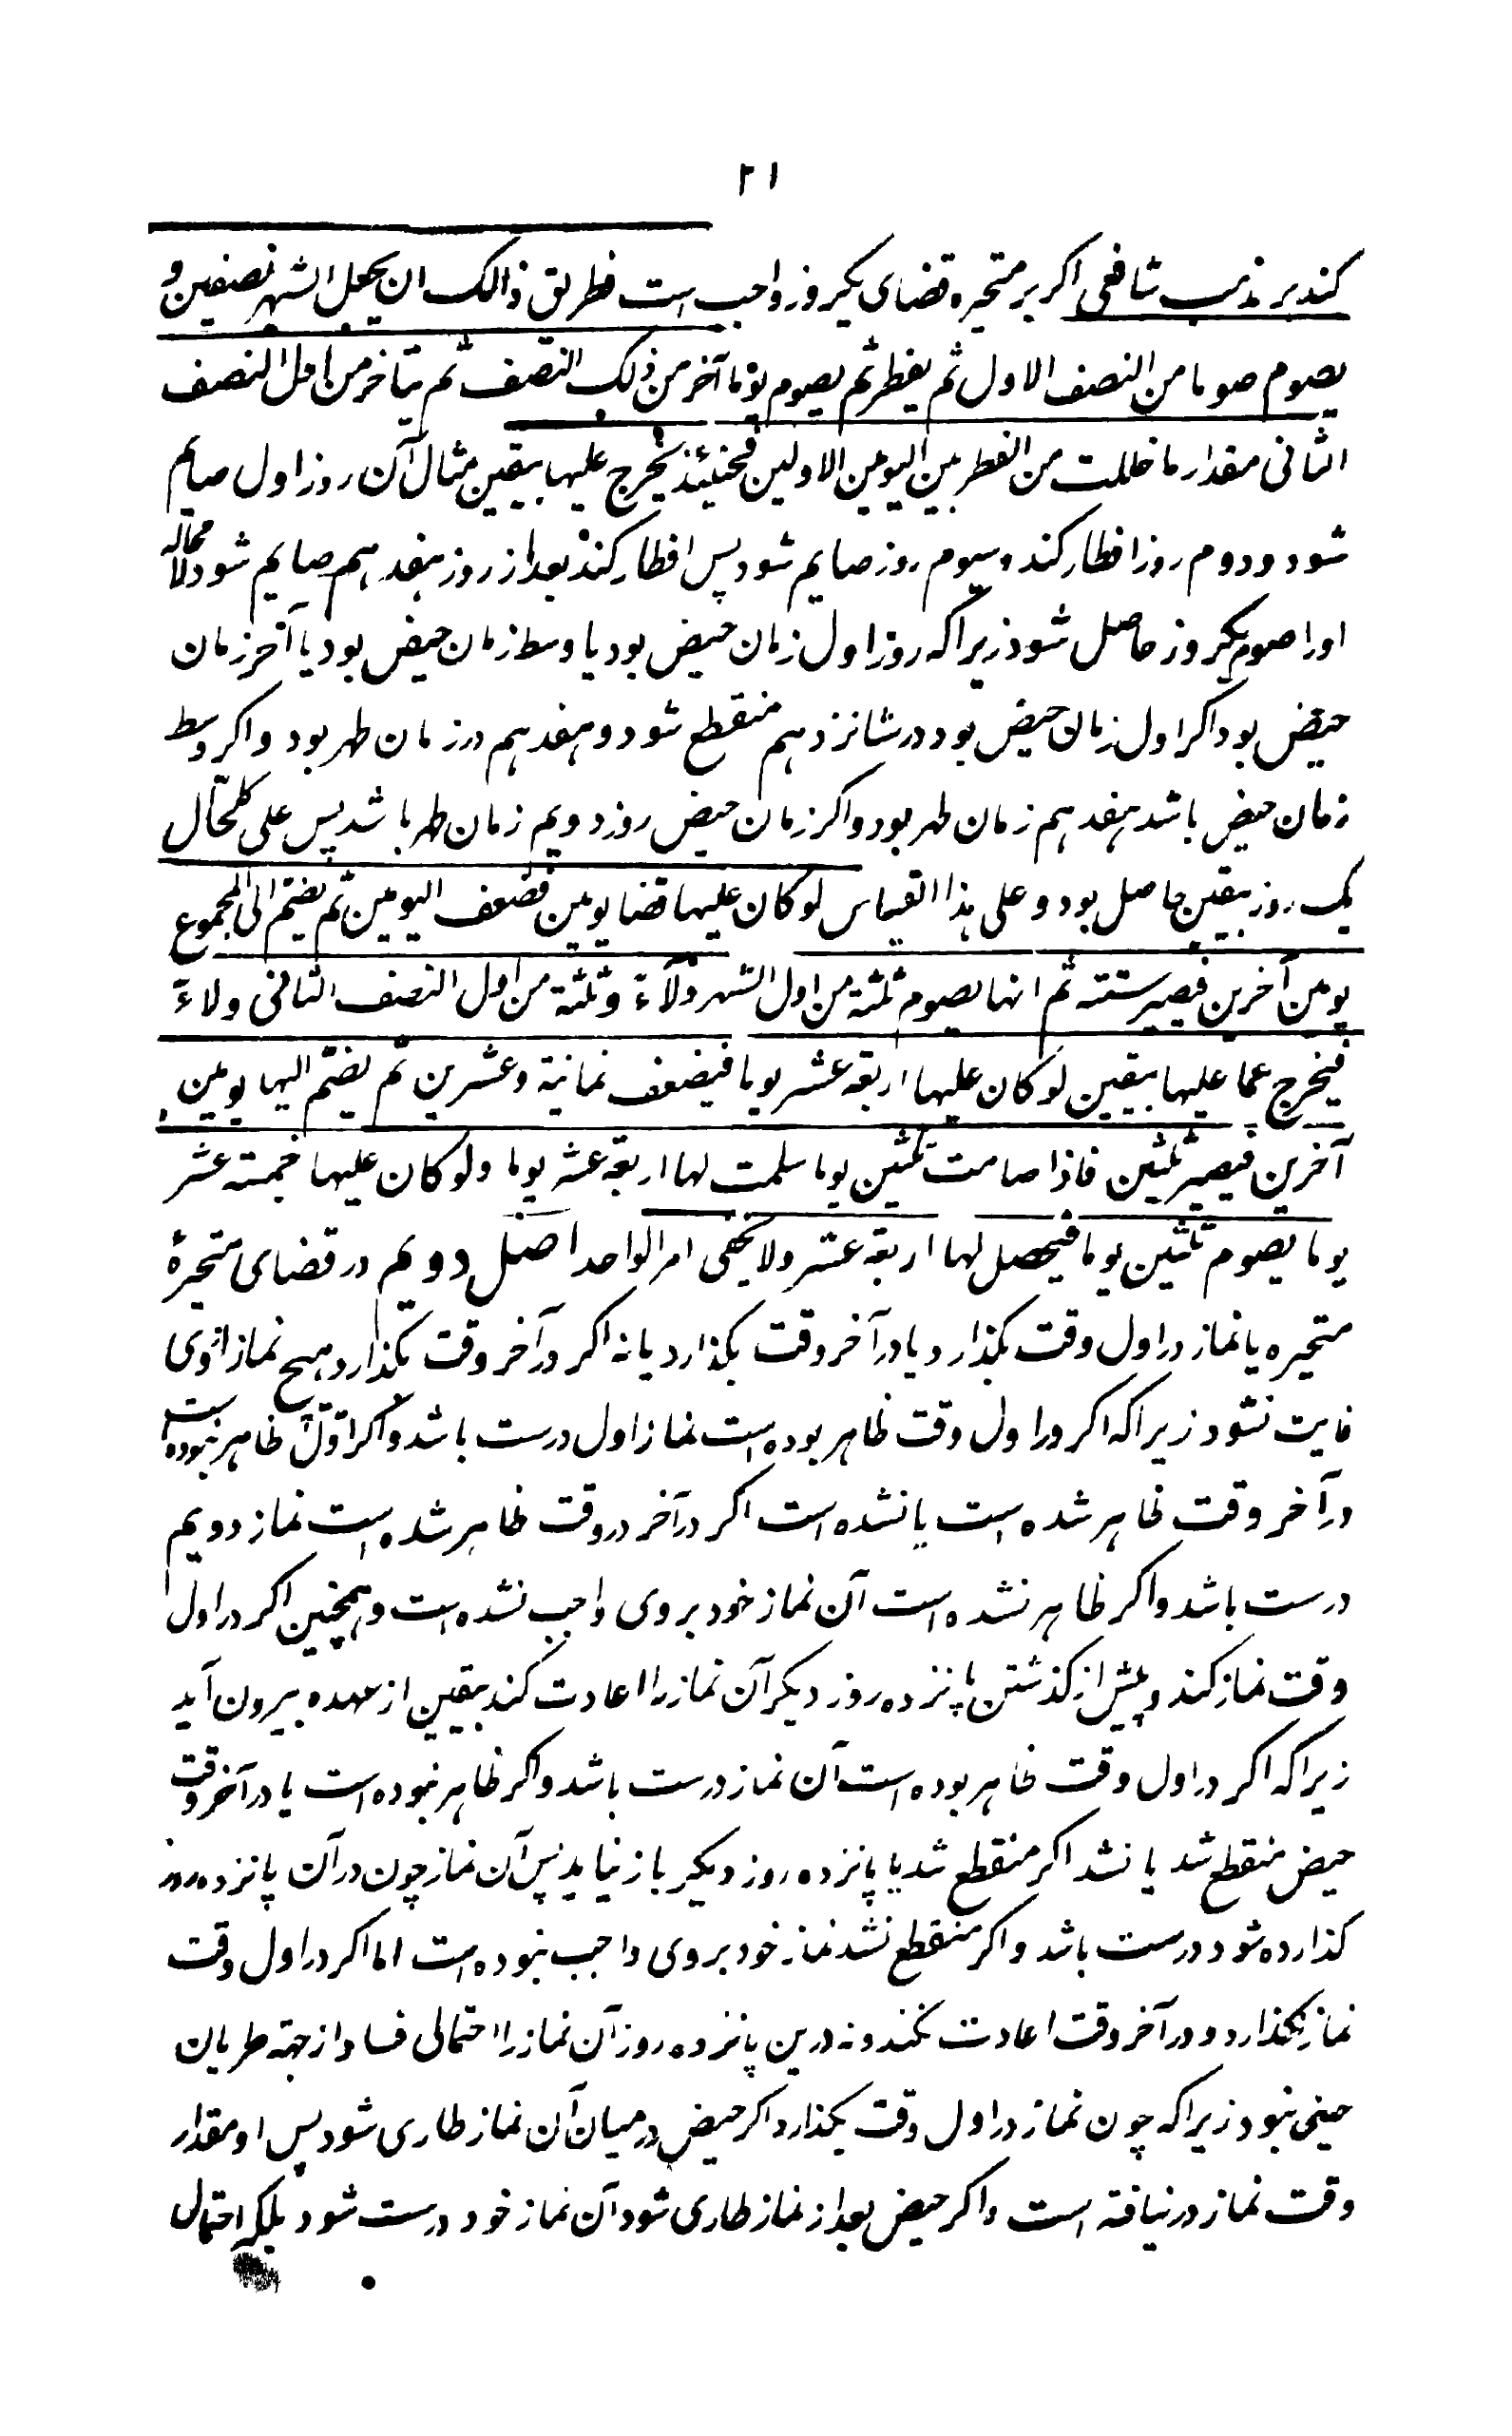 ٢١
کند بر مذهب شافعی اکر بر متحیره قضای یکروز واجب است فطریق ذالک ان یجعل الشهر نصفین و
یصوم صوما من النصف الاول ثم یفطر ثم یصوم یوما آخر من ذلک النصف ثم یتاخر من اول النصف
الثانی مقدار ما خللت من الفطر بین الیومین الاولین فحینئذ یخرج علیها بیقین مثال آن روز اول صایم
شود و دوم روز افطار کند و سیوم روز صایم شود پس افطار کند بعد از روز هفدهم صایم شود لا محاله
اورا صوم یکروز حاصل شود زیراکه روز اول زمان حیض بود یا وسط زمان حیض بود یا آخر زمان
حیض بود اکر اول زمان حیض بود در شانزدهم منقطع شود و هفدهم در زمان طهر بود و اکر وسط
زمان حیض باشد هفدهم زمان طهر بود و اکر زمان حیض روز دویم زمان طهر باشد پس علی کلحال
یک روز بیقین حاصل بود و علی هذا القیاس لو کان علیها قضا یومین فضعف الیومین ثم یضم الی المجموع
یومین آخرین فیصیر ستته ثم انها یصوم ثلثة من اول الشهر ولآء و ثلثة من اول النصف الثانی ولاءً
فیخرج عما علیها بیقین لو کان علیها اربعة عشر یوما فیضعف ثمانیة و عشرین ثم یضم الیها یومین
آخرین فیصیر ثلثین فاذا صامت ثلثین یوما سلمت لها اربعة عشر یوما ولو کان علیها خمسته عشر
یوما یصوم ثلثین یوما فیحصل لها اربعة عشر ولا یخفی امر الواحد اصل دویم در قضای متحیرهٔ
متحیره یا نماز در اول وقت بکذارد یا در آخر وقت بکذارد یا نه اکر در آخر وقت بکذارد هیچ نماز ازوی
فایت نشود زیراکه اکر در اول وقت ظاهر بوده است نماز اول درست باشد و اکر اول ظاهر نبوده است
در آخر وقت ظاهر شده است یا نشده است اکر در آخر در وقت ظاهر شده است نماز دویم
درست باشد و اکر ظاهر نشده است آن نماز خود بروی واجب نشده است و همچنین اکر در اول
وقت نماز کند و پیش از کذشتن پانزده روز دیکر آن نماز را اعادت کند بیقین از عهده بیرون آید
زیراکه اکر در اول وقت ظاهر بوده است آن نماز درست باشد و اکر ظاهر نبوده است یا در آخر وقت
حیض منقطع شد یا نشد اکر منقطع شد یا پانزده روز دیکر باز نیاید پس آن نماز چون در آن پانزده روز
کذارده شود درست باشد و اکر منقطع نشد نماز خود بروی واجب نبوده است اما اکر در اول وقت
نماز بکذارد و در آخر وقت اعادت نکند و نه درین پانزده روز آن نماز را احتمالی فساد از جهة طریان
حیض نبود زیراکه چون نماز در اول وقت بکذارد اکر حیض در میان آن نماز طاری شود پس او مقدار
وقت نماز در نیافته است و اکر حیض بعد از نماز طاری شود آن نماز خود درست شود بلکه احتمال